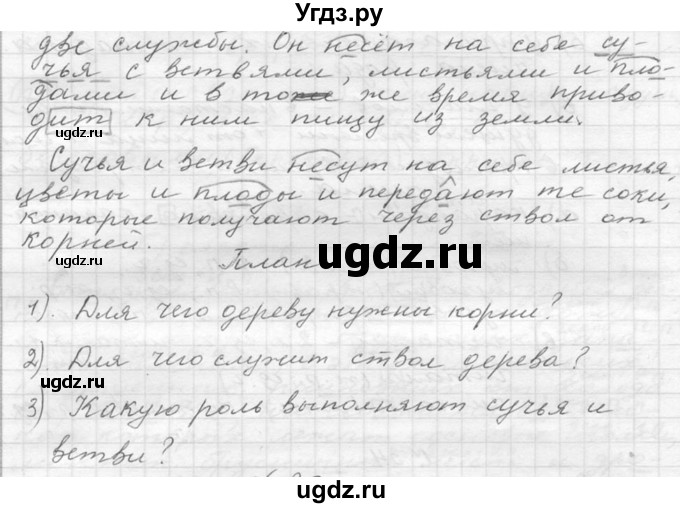 Угдз.ру
две службы. Он несёт на себе су-
чья с ветвями, листьями и пло-
дами и в то же время приво-
дит к ним пищу из земли.
ugdz.ru
ugdz.ru
Сучья и ветви несут на себе листья,
цветы и плоды и передают те соки,
которые получают через ствол от
корней.
ugdz.ru
План
ugdz.ru
1). Для чего дереву нужны корни?
2). Для чего служит ствол дерева?
ugdz.ru
3) Какую роль выполняют сучья и
ветви?
ugdz.ru
ugdz.ru